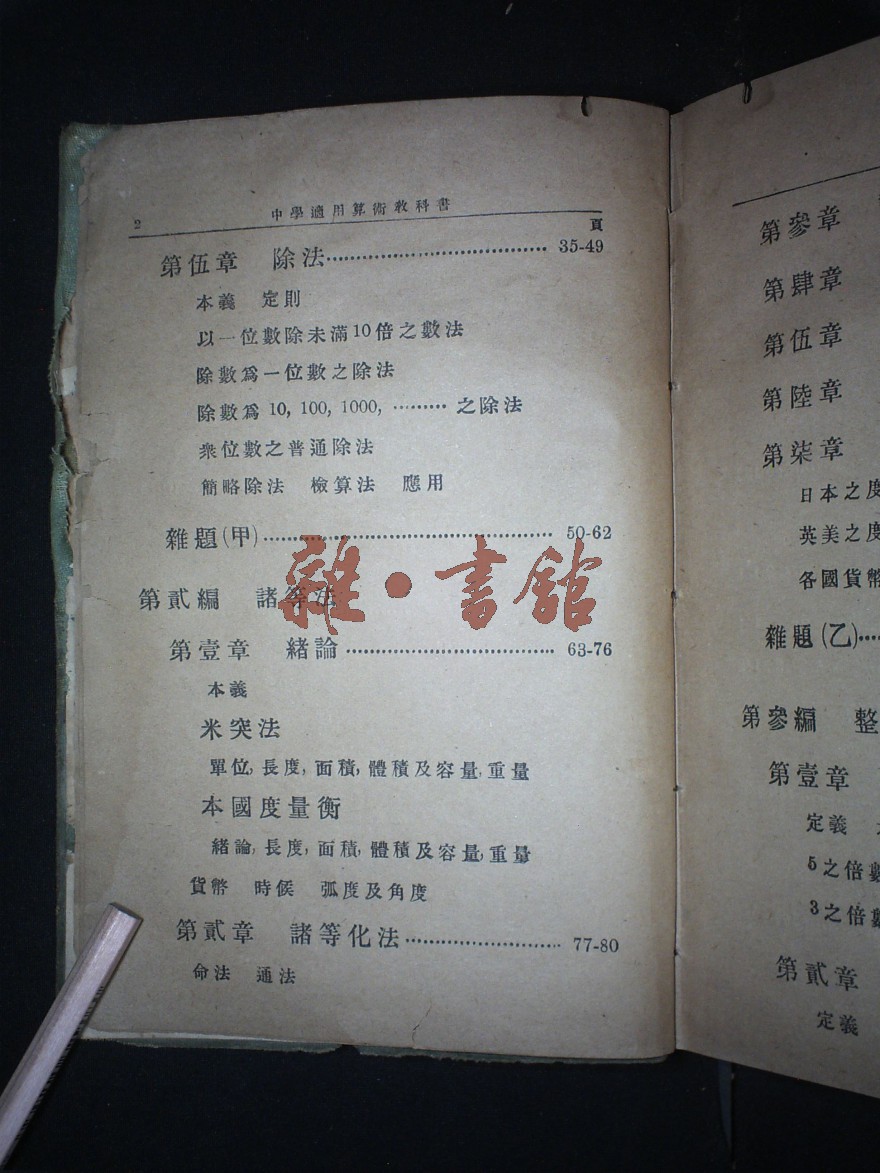 2 中學適用算術敎科書
頁
第伍章 除法 35-49
本義 定則
以一位數除未滿10倍之數法
除數爲一位數之除法
除數爲 10, 100, 1000, ········· 之除法
衆位數之普通除法
簡略除法 檢算法 應用
雜題(甲) 50-62
第貳編 諸等法
雜·書館
第壹章 緒論 63-76
本義
米突法
單位, 長度, 面積, 體積及容量, 重量
本國度量衡
緒論, 長度, 面積, 體積及容量, 重量
貨幣 時候 弧度及角度
第貳章 諸等化法 77-80
命法 通法
第參章
第肆章
第伍章
第陸章
第柒章
日本之度
英美之度
各國貨幣
雜題(乙)
第參編 整
第壹章
定義
5之倍數
3之倍數
第貳章
定義